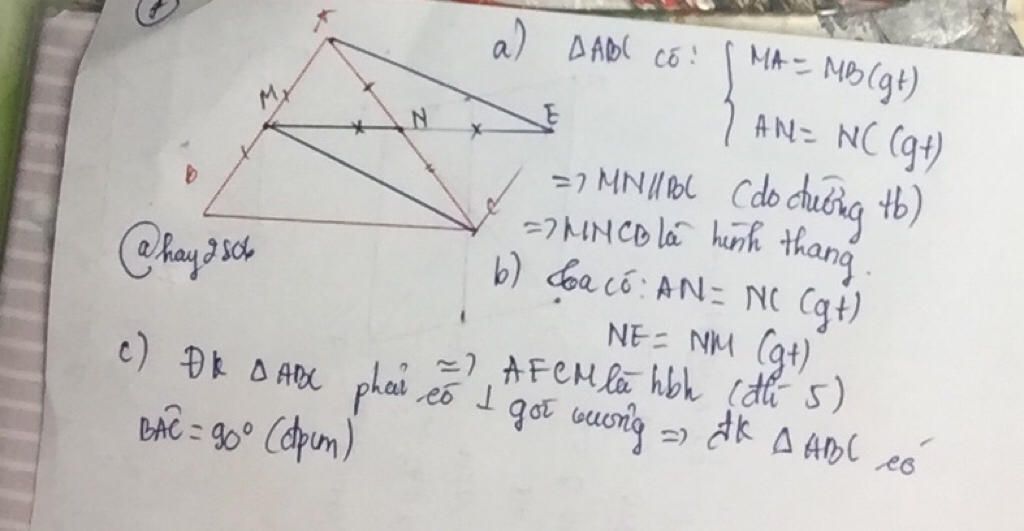 1
A
M
N
E
B
C
@hay2506
a) ΔABC có: { MA = MB (gt)
AN = NC (gt)
=> MN // BC (do đường tb)
=> MNCB là hình thang.
b) Ta có: AN = NC (gt)
NE = NM (gt)
=> AECM là hbh (dh 5)
c) Đk ΔABC phải có 1 góc vuông => đk ΔABC có
BAC = 90° (đpcm)